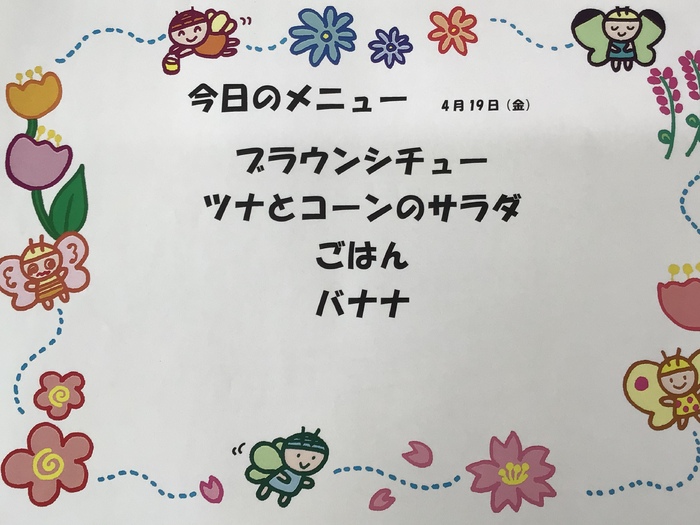 今日のメニュー 4月19日（金）
ブラウンシチュー
ツナとコーンのサラダ
ごはん
バナナ